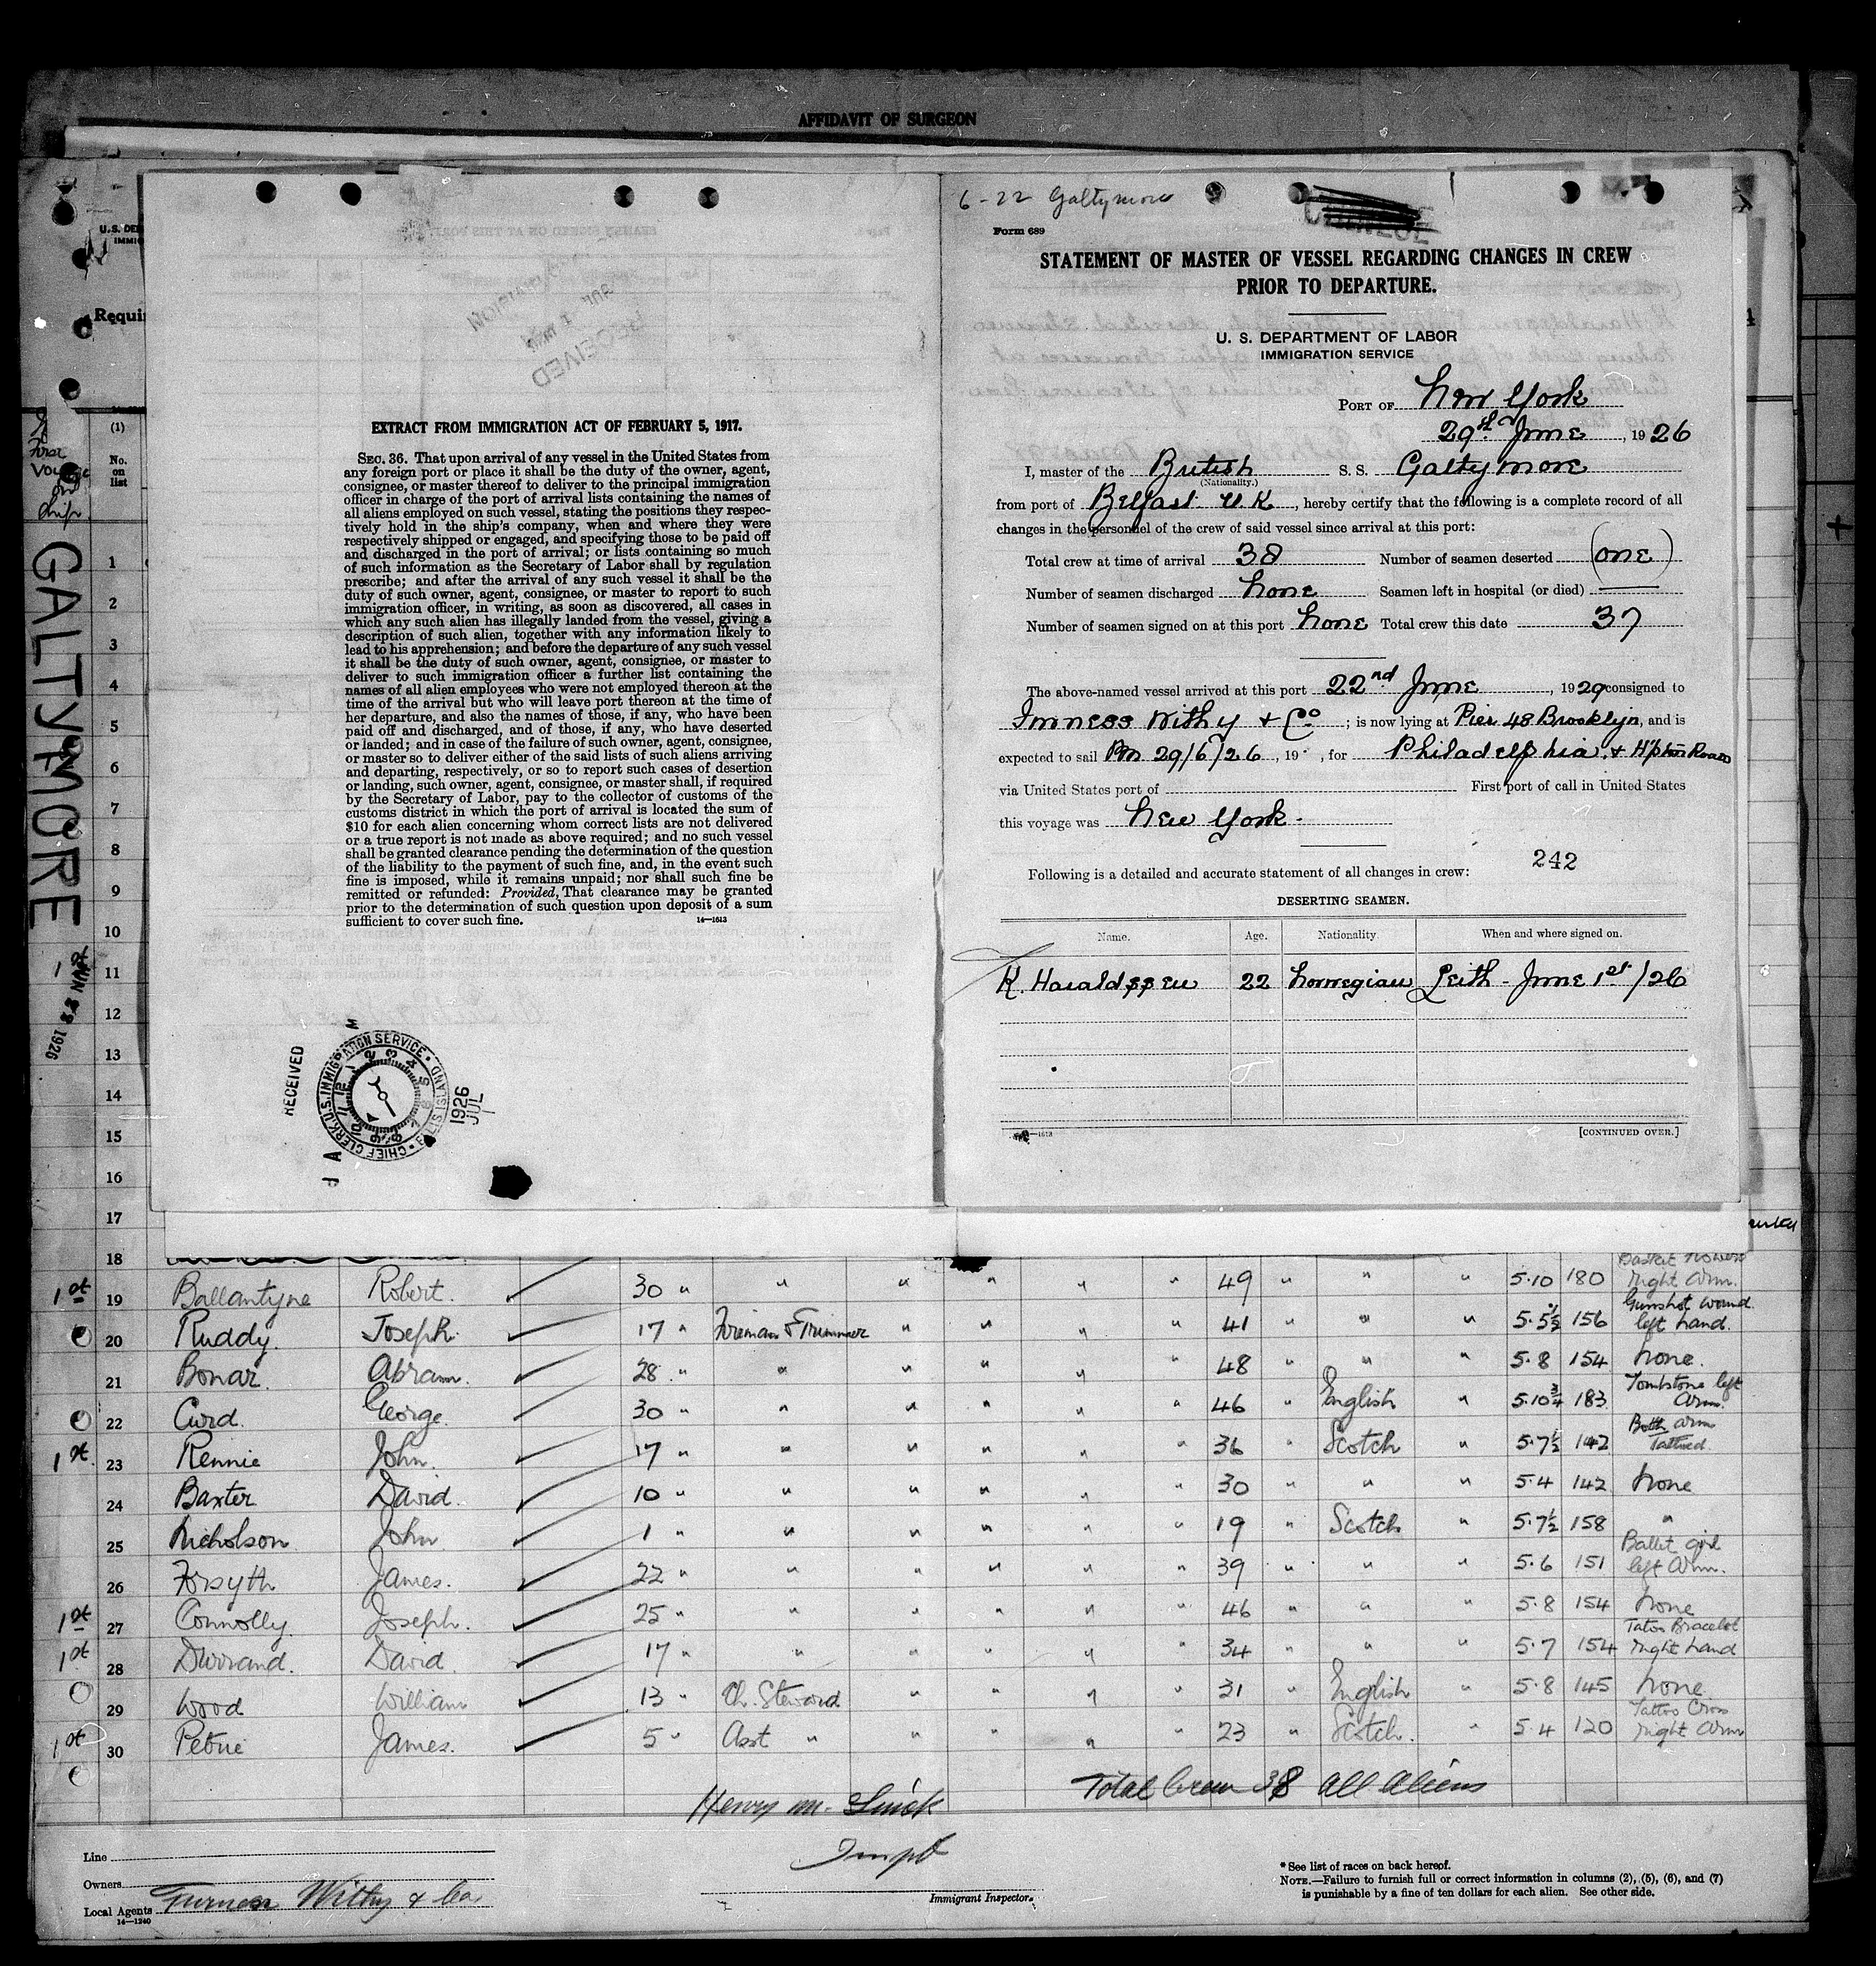 AFFIDAVIT OF SURGEON
U.S. DE
IMMIG
Requi
(1)
No.
on
list
First
GALTYMORE
JUN 22 1926
1
2
3
4
5
6
7
8
9
10
11
12
13
14
15
16
17
18
EXTRACT FROM IMMIGRATION ACT OF FEBRUARY 5, 1917.
SEC. 36. That upon arrival of any vessel in the United States from
any foreign port or place it shall be the duty of the owner, agent,
consignee, or master thereof to deliver to the principal immigration
officer in charge of the port of arrival lists containing the names of
all aliens employed on such vessel, stating the positions they respec-
tively hold in the ship's company, when and where they were
respectively shipped or engaged, and specifying those to be paid off
and discharged in the port of arrival; or lists containing so much
of such information as the Secretary of Labor shall by regulation
prescribe; and after the arrival of any such vessel it shall be the
duty of such owner, agent, consignee, or master to report to such
immigration officer, in writing, as soon as discovered, all cases in
which any such alien has illegally landed from the vessel, giving a
description of such alien, together with any information likely to
lead to his apprehension; and before the departure of any such vessel
it shall be the duty of such owner, agent, consignee, or master to
deliver to such immigration officer a further list containing the
names of all alien employees who were not employed thereon at the
time of the arrival but who will leave port thereon at the time of
her departure, and also the names of those, if any, who have been
paid off and discharged, and of those, if any, who have deserted
or landed; and in case of the failure of such owner, agent, consignee,
or master so to deliver either of the said lists of such aliens arriving
and departing, respectively, or so to report such cases of desertion
or landing, such owner, agent, consignee, or master shall, if required
by the Secretary of Labor, pay to the collector of customs of the
customs district in which the port of arrival is located the sum of
$10 for each alien concerning whom correct lists are not delivered
or a true report is not made as above required; and no such vessel
shall be granted clearance pending the determination of the question
of the liability to the payment of such fine, and, in the event such
fine is imposed, while it remains unpaid; nor shall such fine be
remitted or refunded: Provided, That clearance may be granted
prior to the determination of such question upon deposit of a sum
sufficient to cover such fine. 14—1613
RECEIVED
CHIEF CLERK U.S. IMMIGRATION SERVICE • ELLIS ISLAND
1926
JUL 1
6-22 Galtymore
CHINESE
Form 689
STATEMENT OF MASTER OF VESSEL REGARDING CHANGES IN CREW
PRIOR TO DEPARTURE.
U. S. DEPARTMENT OF LABOR
IMMIGRATION SERVICE
PORT OF New York
29th June, 1926
I, master of the British S. S. Galtymore
(Nationality.)
from port of Belfast U.K, hereby certify that the following is a complete record of all
changes in the personnel of the crew of said vessel since arrival at this port:
Total crew at time of arrival 38 Number of seamen deserted (one)
Number of seamen discharged none Seamen left in hospital (or died)
Number of seamen signed on at this port none Total crew this date 37
The above-named vessel arrived at this port 22nd June, 1929 consigned to
Furness Withy & Co; is now lying at Pier 48 Brooklyn, and is
expected to sail PM 29/6/26, 19 , for Philadelphia & H'pton Roads
via United States port of First port of call in United States
this voyage was New York.
242
Following is a detailed and accurate statement of all changes in crew:
DESERTING SEAMEN.
Name. Age. Nationality When and where signed on.
K. Haraldssen 22 Norwegian Leith - June 1st/26
[CONTINUED OVER.]
Basket flowers
1st 19 Ballantyne Robert. 30 " " " " " " 49 " " " 5·10 180 right arm.
20 Ruddy. Joseph. 17 " Fireman & Trimmer " " " " 41 " " " 5·5½ 156 Gunshot wound left hand.
21 Bonar. Abram. 28 " " " " " " 48 " " " 5·8 154 none.
22 Curd. George. 30 " " " " " " 46 " English " 5·10¾ 183 Tombstone left arm.
1st 23 Rennie John. 17 " " " " " " 36 " Scotch " 5·7½ 142 Both arm Tattued.
24 Baxter David. 10 " " " " " " 30 " " " 5·4 142 none
25 Nicholson John 1 " " " " " " 19 " Scotch " 5·7½ 158 "
26 Forsyth James. 22 " " " " " " 39 " " " 5·6 151 Ballet girl left arm.
1st 27 Connolly. Joseph. 25 " " " " " " 46 " " " 5·8 154 none
1st 28 Durrand. David. 17 " " " " " " 34 " " " 5·7 154 Tatoo Bracelet right hand
29 Wood William 13 " Ch. Steward " " " " 31 " English " 5·8 145 none.
1st 30 Petrie James. 5 " Asst " " " " " 23 " Scotch. " 5 4 120 Tattoo Cross right arm
Total Crew 38 All Aliens
Henry M.
Inspt
Immigrant Inspector.
Line
Owners
Local Agents Furness Withy & Co.
14—1240
* See list of races on back hereof.
NOTE.—Failure to furnish full or correct information in columns (2), (5), (6), and (7)
is punishable by a fine of ten dollars for each alien. See other side.